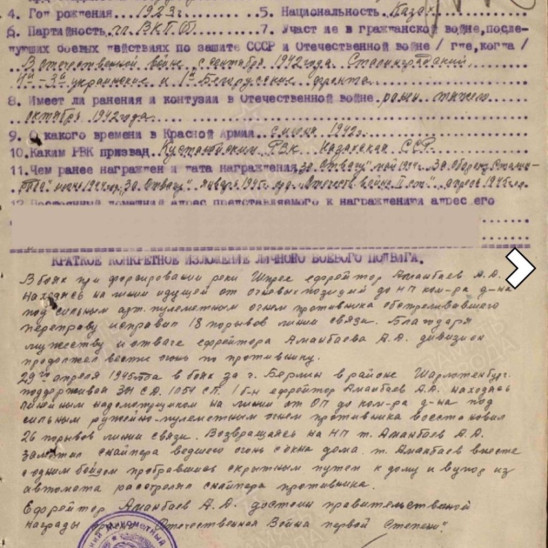 4. Год рождения 1923г. 5. Национальность Казах
6. Партийность чл. ВКП(б) 7. Участие в гражданской войне, после-
дующих боевых действиях по защите СССР и Отечественной войне /где, когда/
В отечественной войне с сентября 1942 года. Сталинградский
4й - 3й украинские и 1й Белорусский фронта
8. Имеет ли ранения и контузии в Отечественной войне ранен
октябрь 1942 года
9. С какого времени в Красной Армии с 1942г.
10. Каким РВК призван Кустанайским РВК Казахской ССР.
11. Чем ранее награжден и дата награждения
12. Постоянный домашний адрес представляемого к награждению адрес его
КРАТКОЕ КОНКРЕТНОЕ ИЗЛОЖЕНИЕ ЛИЧНОГО БОЕВОГО ПОДВИГА.
В боях при форсировании реки Шпрее ефрейтор Аманбаев А.А.
находясь на линии идущей от огневых позиций до НП ком-ра д-на
под сильным арт. пулеметным огнем противника обстреливавшего
переправу исправил 18 порывов линии связи. Благодаря
мужеству и отваге ефрейтора Аманбаева А.А. дивизион
продолжал вести огонь по противнику.
29го апреля 1945 года в боях за г. Берлин в районе Шарлотенбург
поддерживая 1054 С.П. ефрейтор Аманбаев А.А. находясь
линейным надсмотрщиком на линии от ОП до ком-ра д-на под
сильным ружейно-пулеметным огнем противника восстановил
26 порывов линии связи. Возвращаясь на НП т. Аманбаев А.А.
заметил снайпера ведшего огонь с окна дома. т. Аманбаев вместе
с одним бойцом пробравшись скрытным путем к дому и в упор из
автомата расстрелял снайпера противника.
Ефрейтор Аманбаев А.А. достоин правительственной
награды Отечественная Война первой степени".